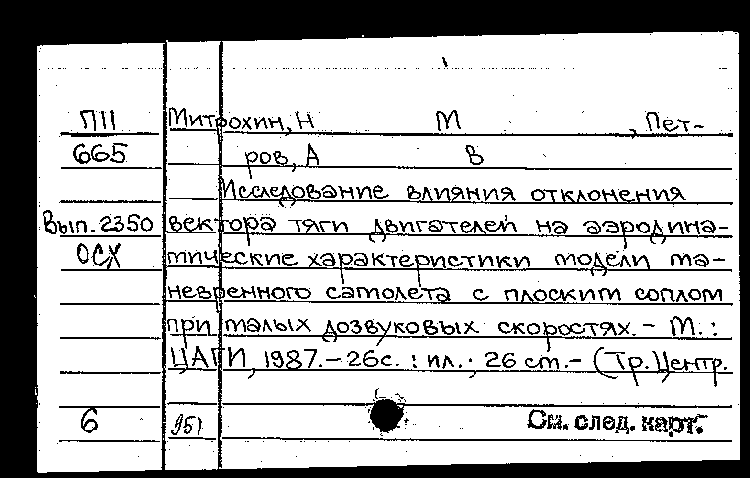 П11 Митрохин, Н М , Пет-
665 ров, А В
Исследование влияния отклонения
Вып. 2350 вектора тяги двигателей на аэродина-
ОСХ мические характеристики модели ма-
невренного самолета с плоским соплом
при малых дозвуковых скоростях. - М. :
ЦАГИ, 1987. - 26с. : ил. ; 26 см. - (Тр. Центр.
6 951 См. след. карт.